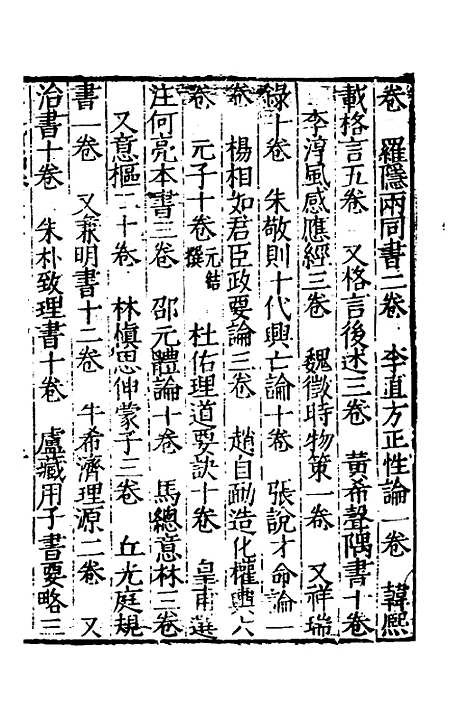 卷　羅隱兩同書二卷　李直方正性論一卷　韓熙
載格言五卷　又格言後述三卷　黃希聲隅書十卷
李淳風感應經三卷　魏徵時物策一卷　又祥瑞
錄十卷　朱敬則十代興亡論十卷　張說才命論一
卷　楊相如君臣政要論三卷　趙自勔造化權輿六
卷　元子十卷元結撰　杜佑理道要訣十卷　皇甫選
注何亮本書三卷　邵元體論十卷　馬總意林三卷
又意樞二十卷　林愼思伸蒙子三卷　丘光庭規
書一卷　又兼明書十二卷　牛希濟理源二卷　又
治書十卷　朱朴致理書十卷　盧藏用子書要略三